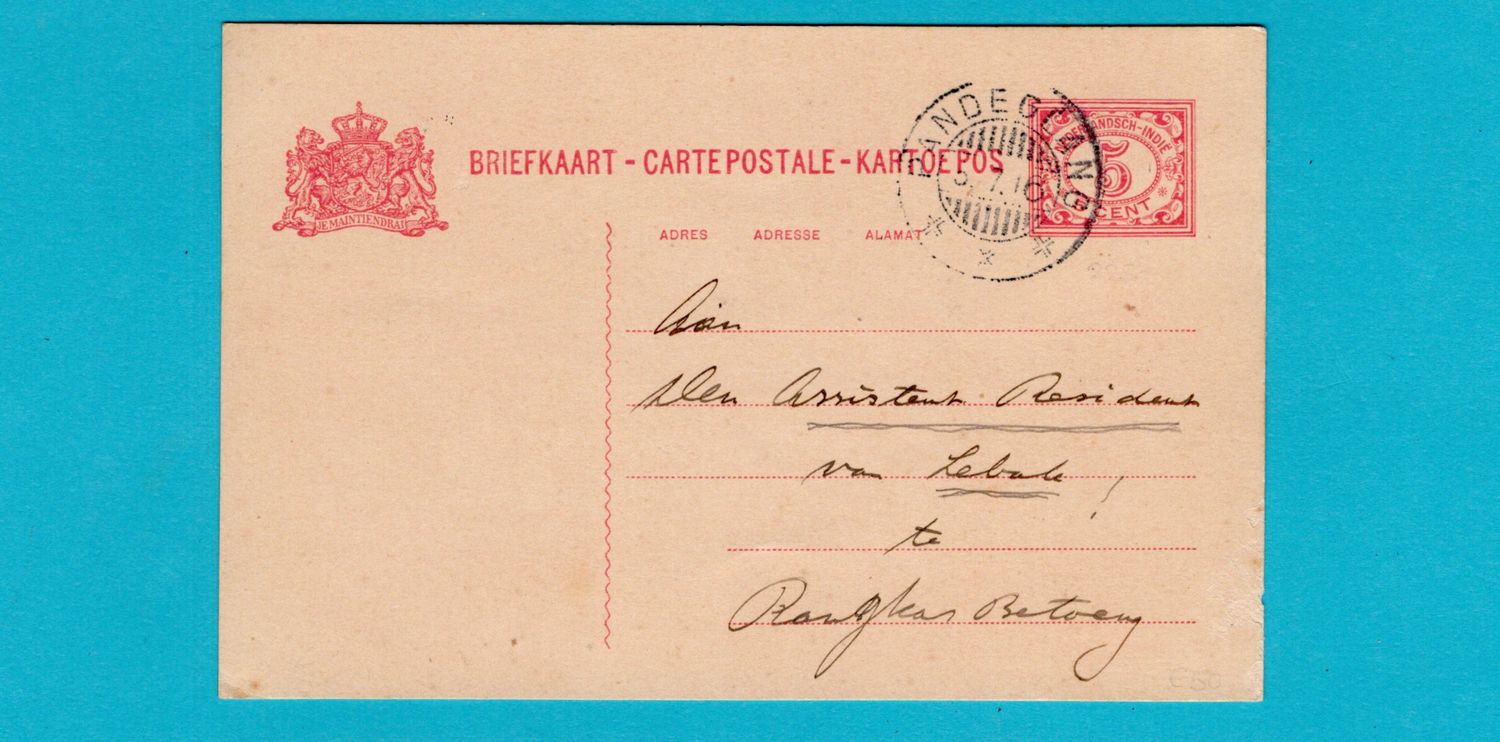 BRIEFKAART - CARTE POSTALE - KARTOEPOS
JE MAINTIENDRAI
NEDERLANDSCH-INDIË
5
CENT
PANDEGLANG
ADRES ADRESSE ALAMAT
Aan
den Assistent Resident
van Lebak !
te
Rangkas Betoeng